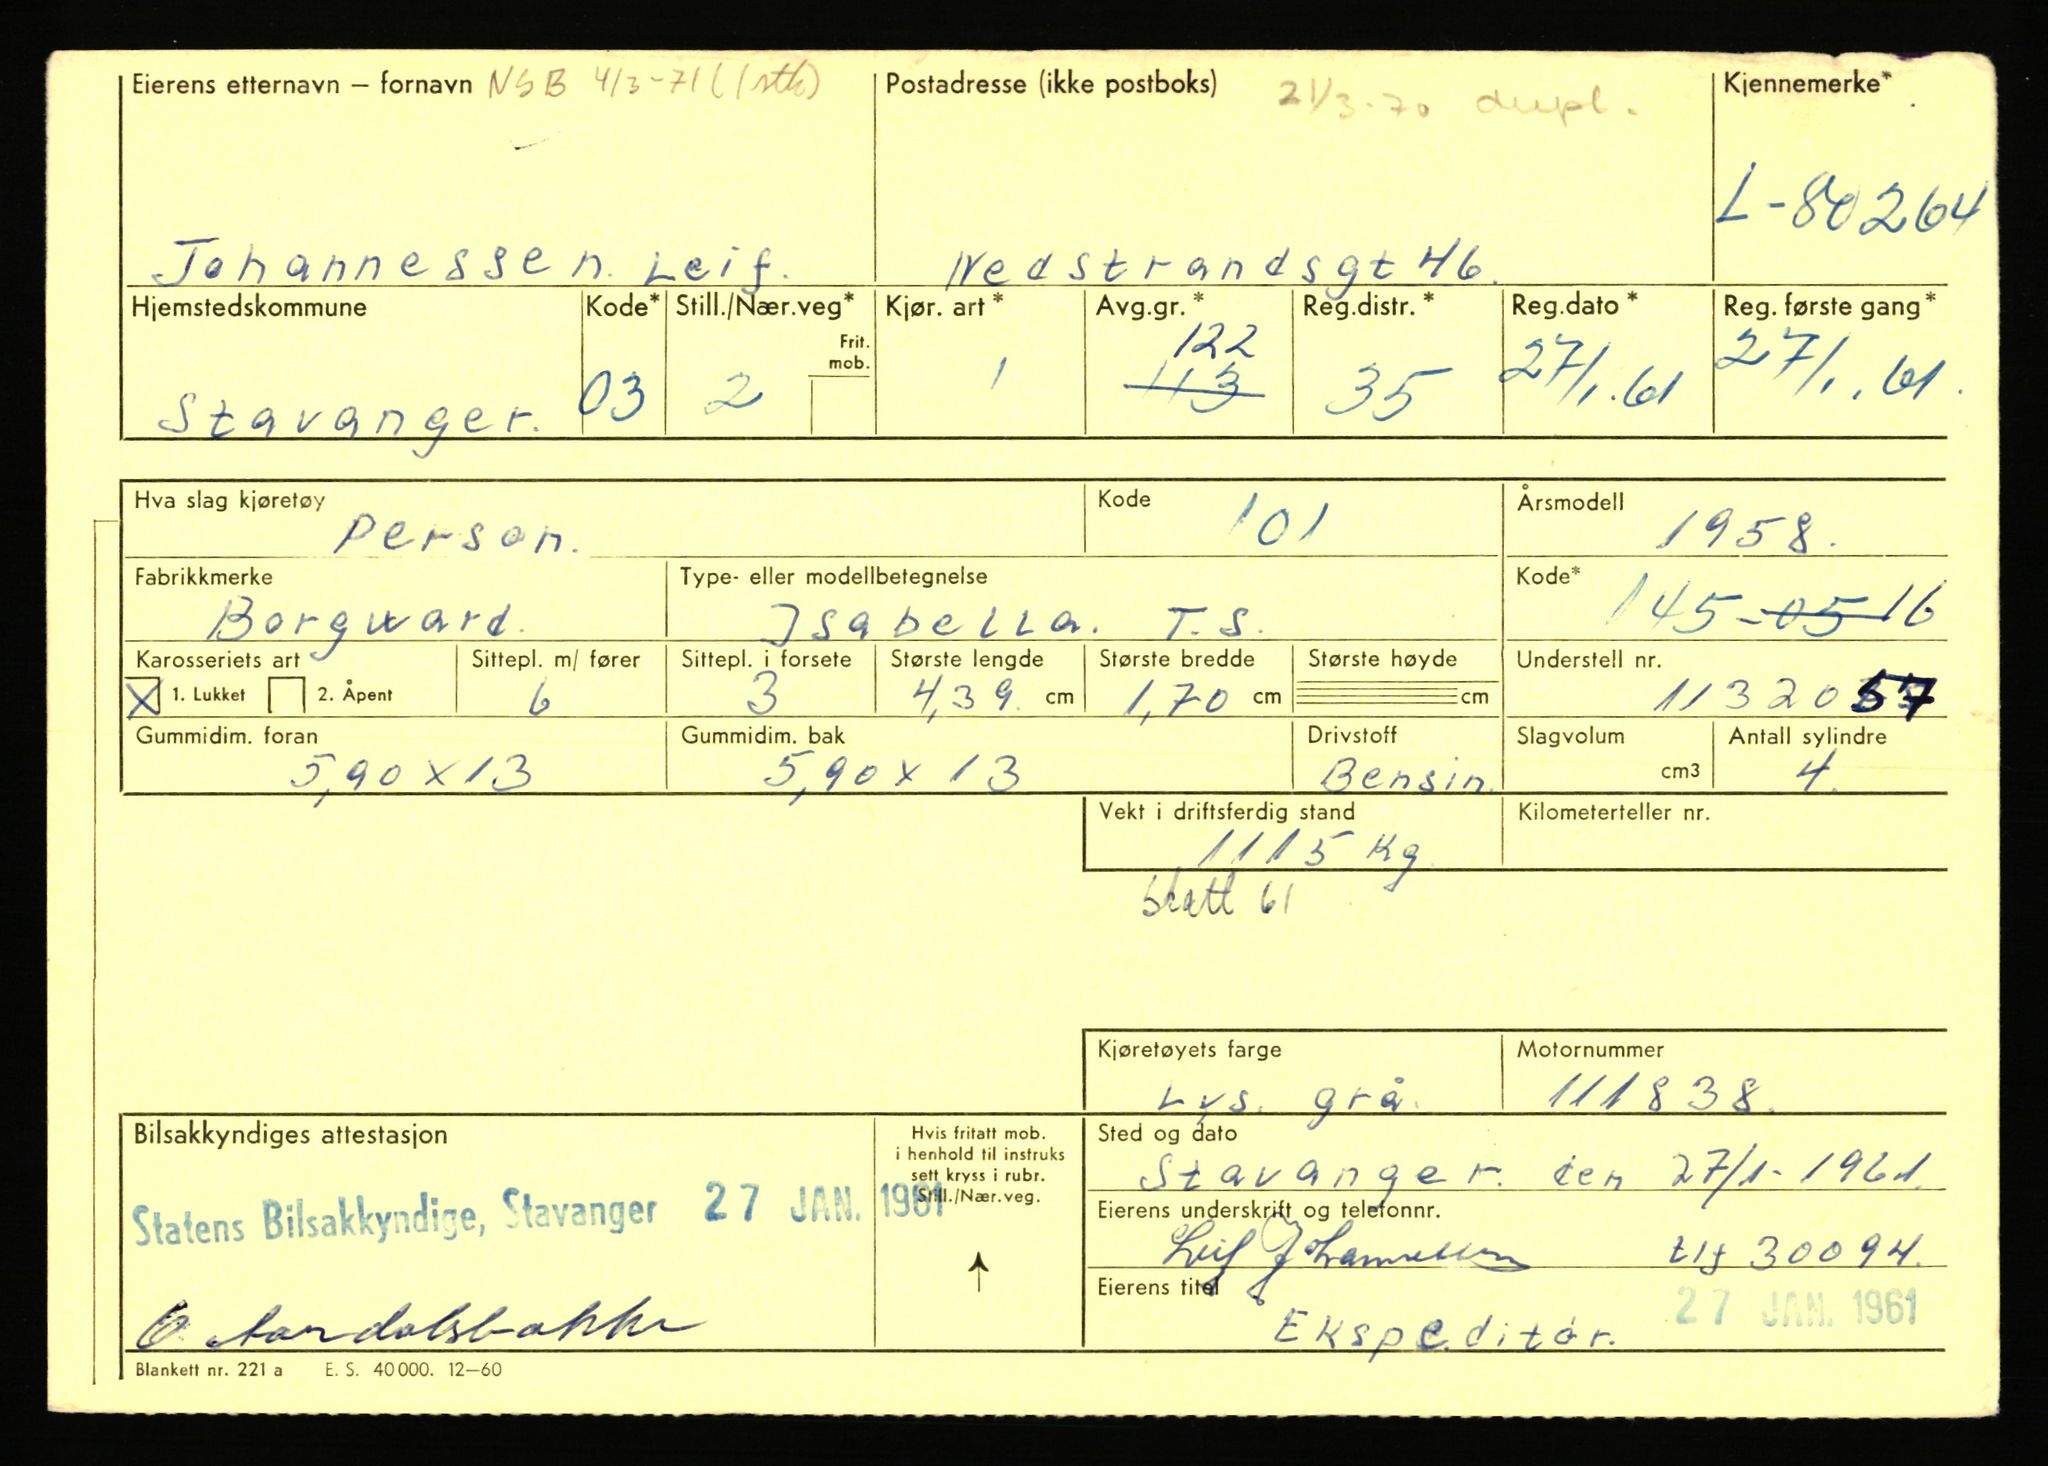 Eierens etternavn – fornavn NSB 4/3-71 (1 stk) Postadresse (ikke postboks) 21/3-70 dupl. Kjennemerke*
L-80264
Johannessen. Leif. Nedstrandsgt 46.
Hjemstedskommune Kode* Still./Nær.veg* Kjør. art * Avg.gr.* Reg.distr. * Reg.dato * Reg. første gang*
Frit. mob.
122
Stavanger. 03 2 1 113 35 27/1.61 27/1.61.
Hva slag kjøretøy Kode Årsmodell
Person. 101 1958.
Fabrikkmerke Type- eller modellbetegnelse Kode*
Borgward. Isabella. T.S. 145-05 16
Karosseriets art Sittepl. m/ fører Sittepl. i forsete Største lengde Største bredde Største høyde Understell nr.
X 1. Lukket 2. Åpent 6 3 4,39 cm 1,70 cm cm 1132057
Gummidim. foran Gummidim. bak Drivstoff Slagvolum Antall sylindre
5,90 x 13 5,90 x 13 Bensin. cm3 4.
Vekt i driftsferdig stand Kilometerteller nr.
1115 kg
61
Kjøretøyets farge Motornummer
Lys. grå. 111838.
Bilsakkyndiges attestasjon Hvis fritatt mob. Sted og dato
i henhold til instruks
sett kryss i rubr. Stavanger. den 27/1-1961.
Still./Nær.veg.
Statens Bilsakkyndige, Stavanger 27 JAN. 1961
Eierens underskrift og telefonnr.
Leif Johannessen tlf 30094.
Eierens titel 27 JAN. 1961
Ekspeditør.
Blankett nr. 221 a E. S. 40 000. 12–60